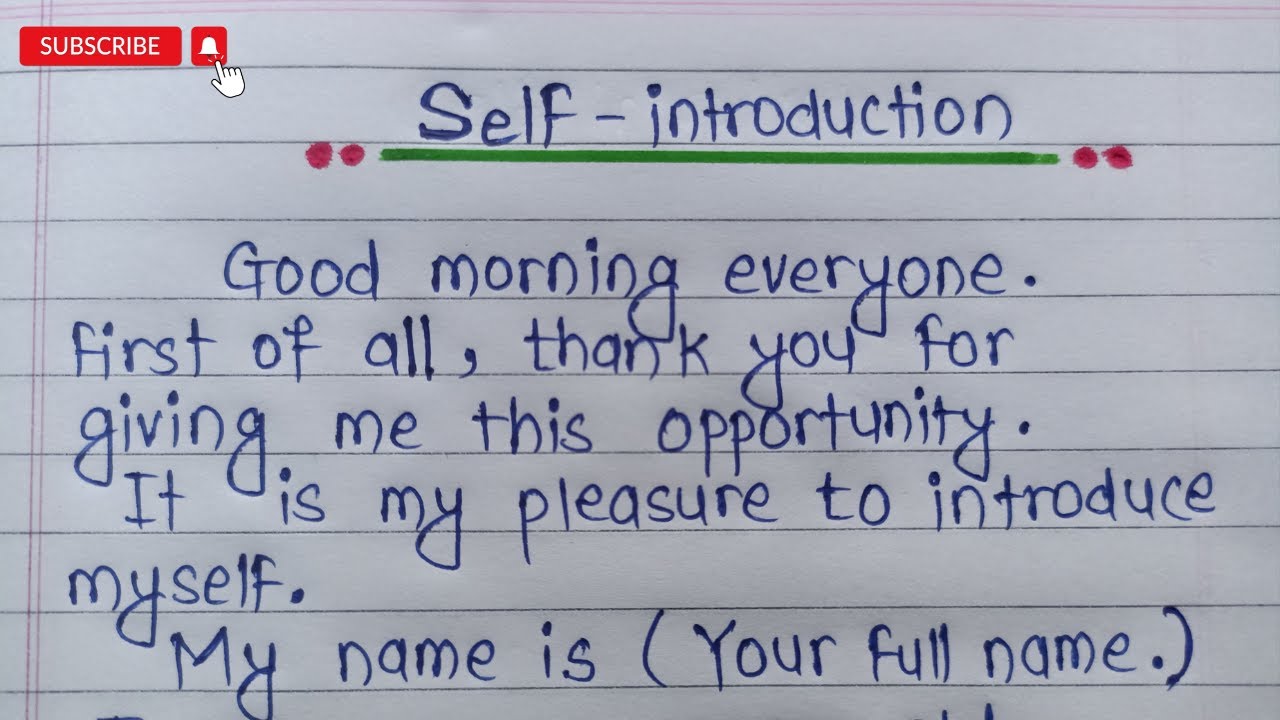 SUBSCRIBE
Self - introduction
Good morning everyone.
First of all, thank you for
giving me this opportunity.
It is my pleasure to introduce
myself.
My name is (Your full name.)